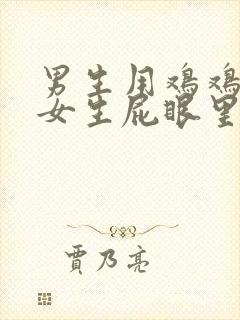 男生用鸡鸡
女生屁眼里
贾乃亮